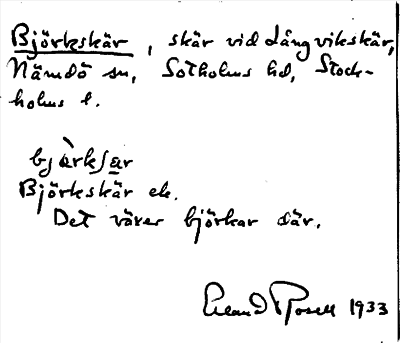 Björkskär, skär vid Långvikskär,
Nämdö sn, Sotholms hd, Stock-
holms l.
bjàrkʃar
Björkskär ek.
Det växer björkar där.
Erland Rosell 1933